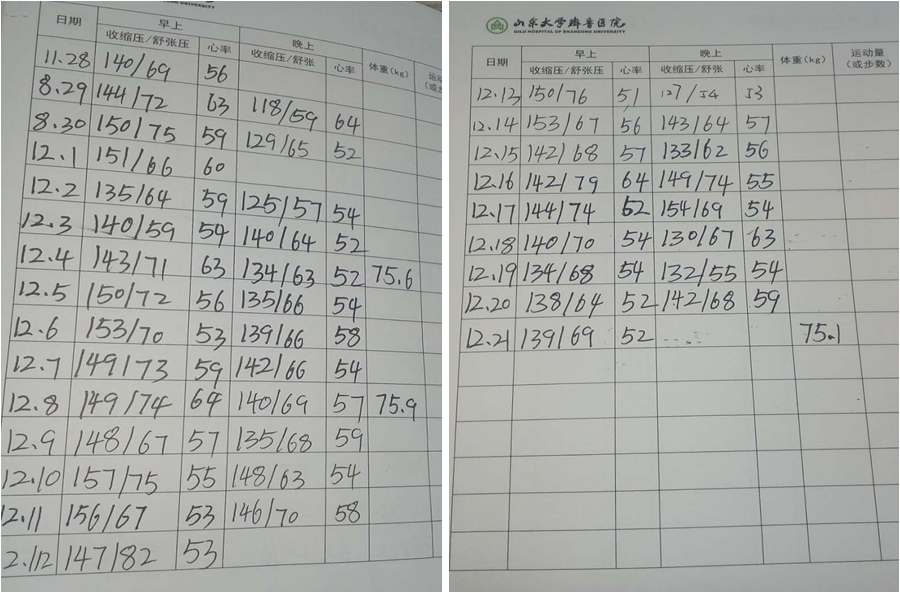 日期 早上 晚上 体重(kg) 运
收缩压/舒张压 心率 收缩压/舒张 心率 (或
11.28 140/69 56
8.29 144/72 63 118/59 64
8.30 150/75 59 129/65 52
12.1 151/66 60
12.2 135/64 59 125/57 54
12.3 140/59 54 140/64 52
12.4 143/71 63 134/63 52 75.6
12.5 150/72 56 135/66 54
12.6 153/70 53 139/66 58
12.7 149/73 59 142/66 54
12.8 149/74 64 140/69 57 75.9
12.9 148/67 57 135/68 59
12.10 157/75 55 148/63 54
12.11 156/67 53 146/70 58
2.12 147/82 53
山东大学齐鲁医院
QILU HOSPITAL OF SHANDONG UNIVERSITY
日期 早上 晚上 体重(kg) 运动量
收缩压/舒张压 心率 收缩压/舒张 心率 (或步数)
12.13 150/76 51 127/54 53
12.14 153/67 56 143/64 57
12.15 142/68 57 133/62 56
12.16 142/79 64 149/74 55
12.17 144/74 62 154/69 54
12.18 140/70 54 130/67 63
12.19 134/68 54 132/55 54
12.20 138/64 52 142/68 59
12.21 139/69 52 75.1